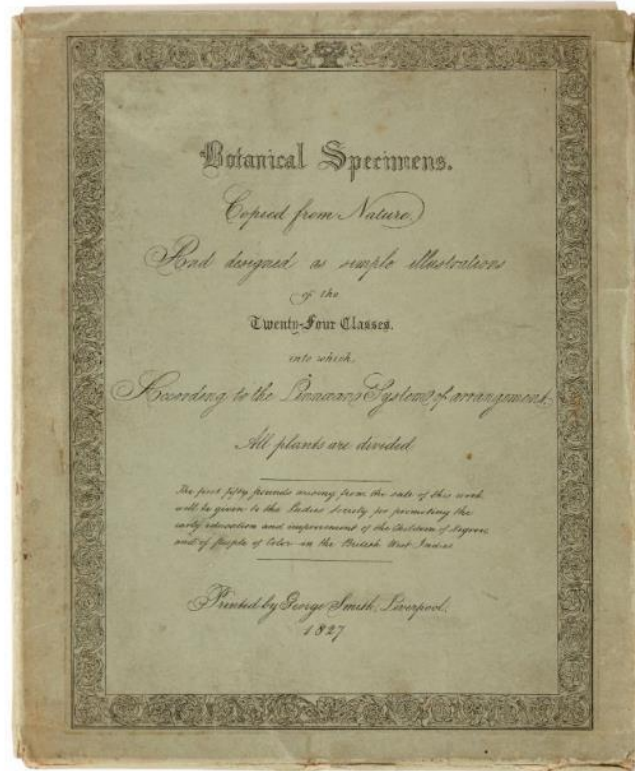 Botanical Specimens.
Copied from Nature,
And designed as simple illustrations
of the
Twenty-Four Classes.
into which,
According to the Linnæan System of arrangement
All plants are divided
The first fifty pounds arising from the sale of this work
will be given to the Ladies Society for promoting the
early education and improvement of the Children of Negroes
and of People of Color in the British West Indies
Printed by George Smith, Liverpool.
1827